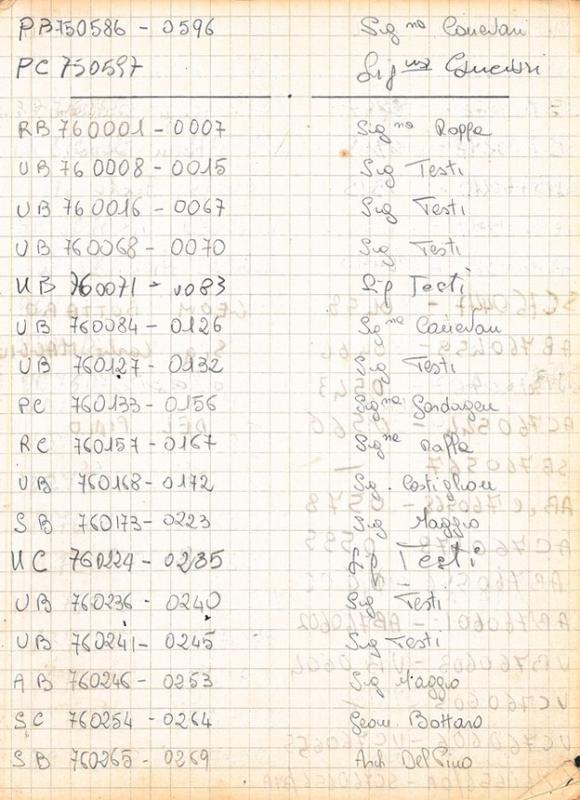 PB750586 - 0596 Sig.na Canevari
PC 750597 Sig.na Canevari
RB 760001 - 0007 Sig.na Raffa
UB 760008 - 0015 Sig Testi
UB 760016 - 0067 Sig Testi
UB 760068 - 0070 Sig Testi
UB 760071 - 0083 Sig Testi
UB 760084 - 0126 Sig.na Canevari
UB 760127 - 0132 Sig. Testi
PC 760133 - 0156 Sig.na
RC 760157 - 0167 Sig.na Raffa
UB 760168 - 0172 Sig. Costiglioni
SB 760173 - 0223 Sig Maggio
UC 760224 - 0235 Sig Testi
UB 760236 - 0240 Sig Testi
UB 760241 - 0245 Sig Testi
AB 760246 - 0253 Sig Maggio
SC 760254 - 0264 Geom. Bottaro
SB 760265 - 0269 Arch Del Pino